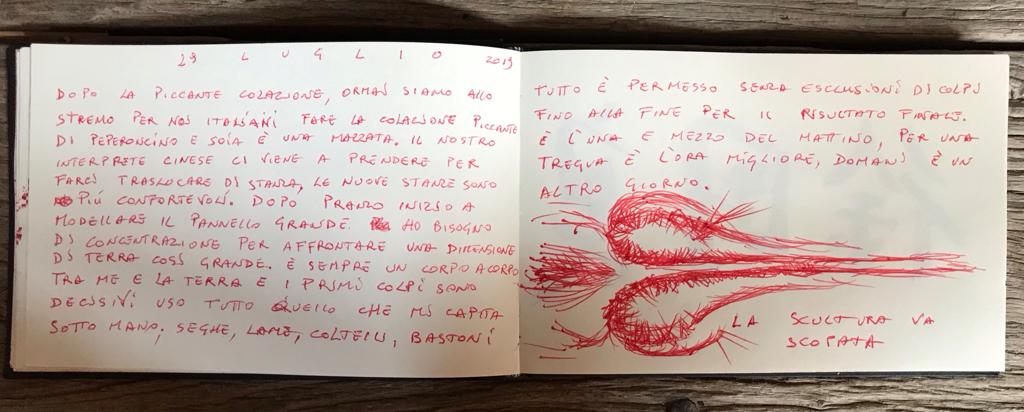 29 LUGLIO 2019
DOPO LA PICCANTE COLAZIONE, ORMAI SIAMO ALLO
STREMO PER NOI ITALIANI FARE LA COLAZIONE PICCANTE
DI PEPERONCINO E SOIA È UNA MAZZATA. IL NOSTRO
INTERPRETE CINESE CI VIENE A PRENDERE PER
FARCI TRASLOCARE DI STANZA, LE NUOVE STANZE SONO
PIÚ CONFORTEVOLI. DOPO PRANZO INIZIO A
MODELLARE IL PANNELLO GRANDE. HO BISOGNO
DI CONCENTRAZIONE PER AFFRONTARE UNA DIMENSIONE
DI TERRA COSÌ GRANDE. È SEMPRE UN CORPO A CORPO
TRA ME E LA TERRA E I PRIMI COLPI SONO
DECISIVI USO TUTTO QUELLO CHE MI CAPITA
SOTTO MANO, SEGHE, LAME, COLTELLI, BASTONI
TUTTO È PERMESSO SENZA ESCLUSIONI DI COLPI
FINO ALLA FINE PER IL RISULTATO FINALE.
È L'UNA E MEZZO DEL MATTINO, PER UNA
TREGUA È L'ORA MIGLIORE, DOMANI È UN
ALTRO GIORNO.
LA SCULTURA VA
SCOPATA